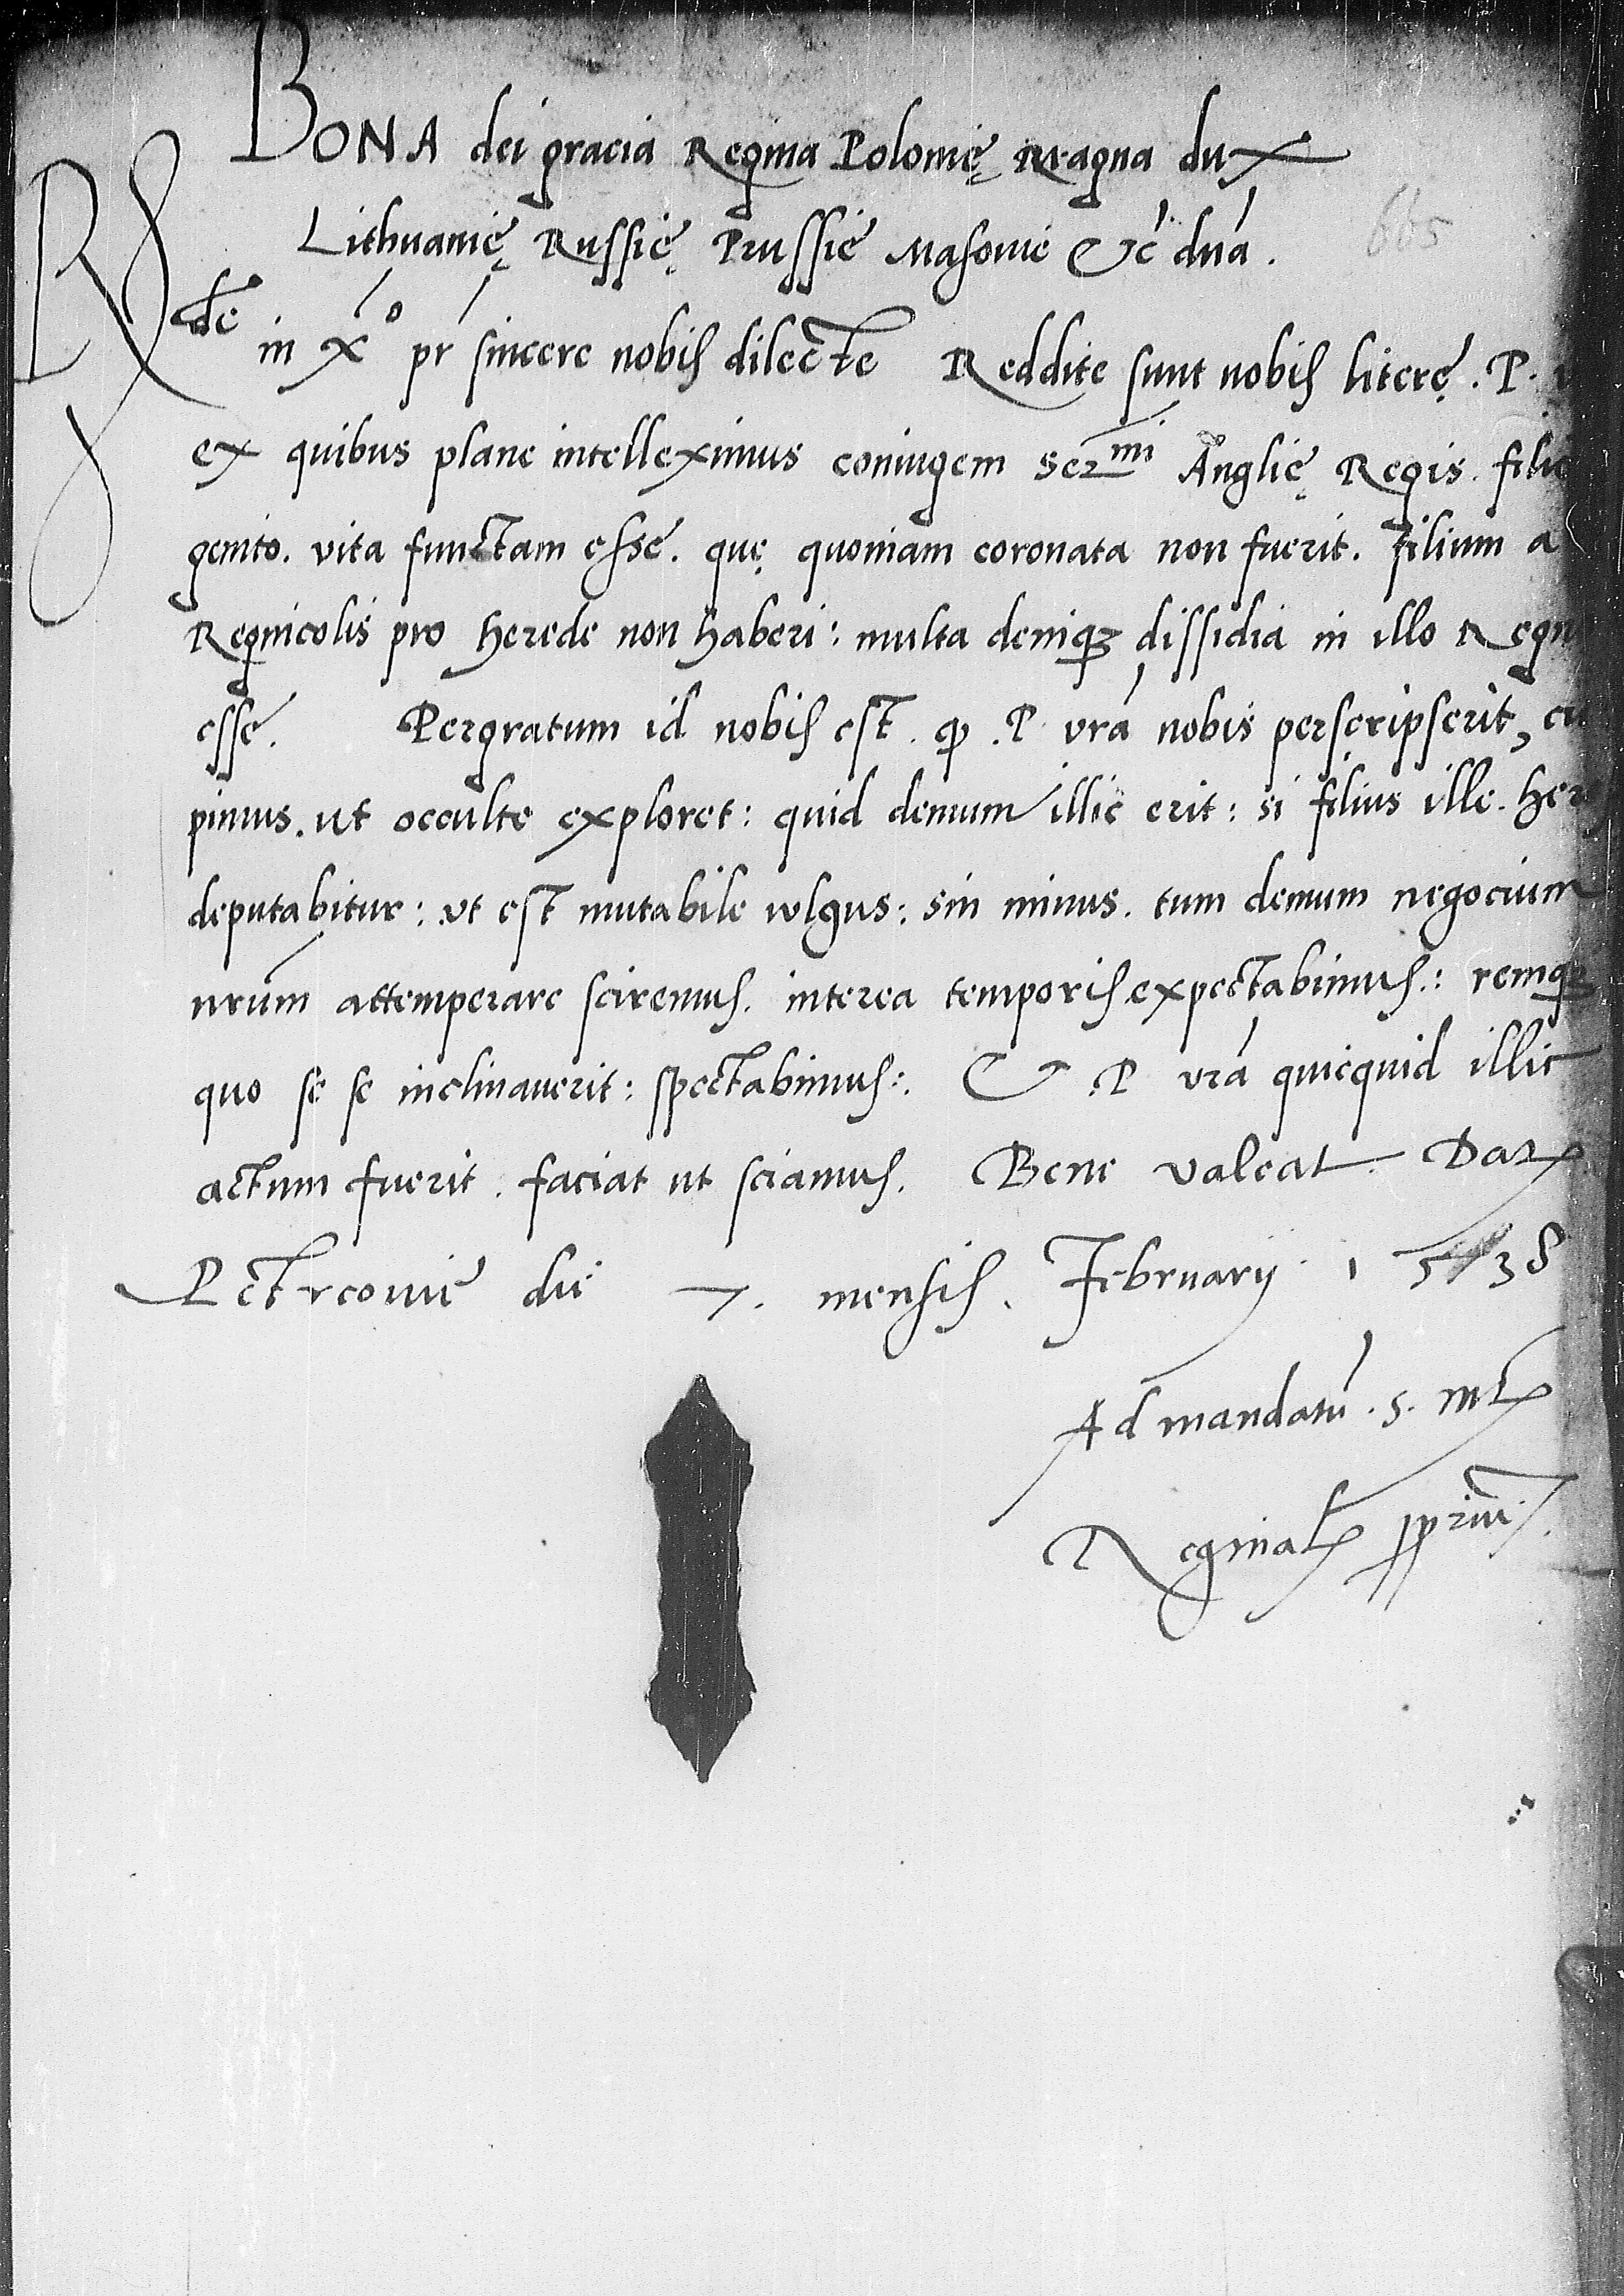 BONA dei gracia Regina Polonię Magna dux
Lithuanię Russię Prussie Masovie &c̃ dn̄a.
665
Rde in Xº pr̃ sincere nobis dilecte Reddite sunt nobis literę. P.
ex quibus plane intelleximus coniugem Sermi Anglię Regis. filio
genito. vita functam esse. quę quoniam coronata non fuerit. filium a
Regnicolis pro herede non haberi: multa deniqꝫ dissidia in illo Regn
esse. Pergratum id nobis est. ꝙ .P. vrã nobis perscripserit, cu
pimus. ut occulte exploret: quid demum illic erit: si filius ille. her
deputabitur: ut est mutabile wlgus: sin minus. tum demum negocium
nrũm attemperare sciremus. interea temporis expectabimus: remqꝫ
quo se se inclinaverit: spectabimus:. Et .P. vrã quicquid illic
actum fuerit. faciat ut sciamus. Bene valeat. Datꝭ
Petrcovie die 7. mensis. February 1538
Ad mandatũ. s. mtꝭ
Reginalꝭ ppriũ.